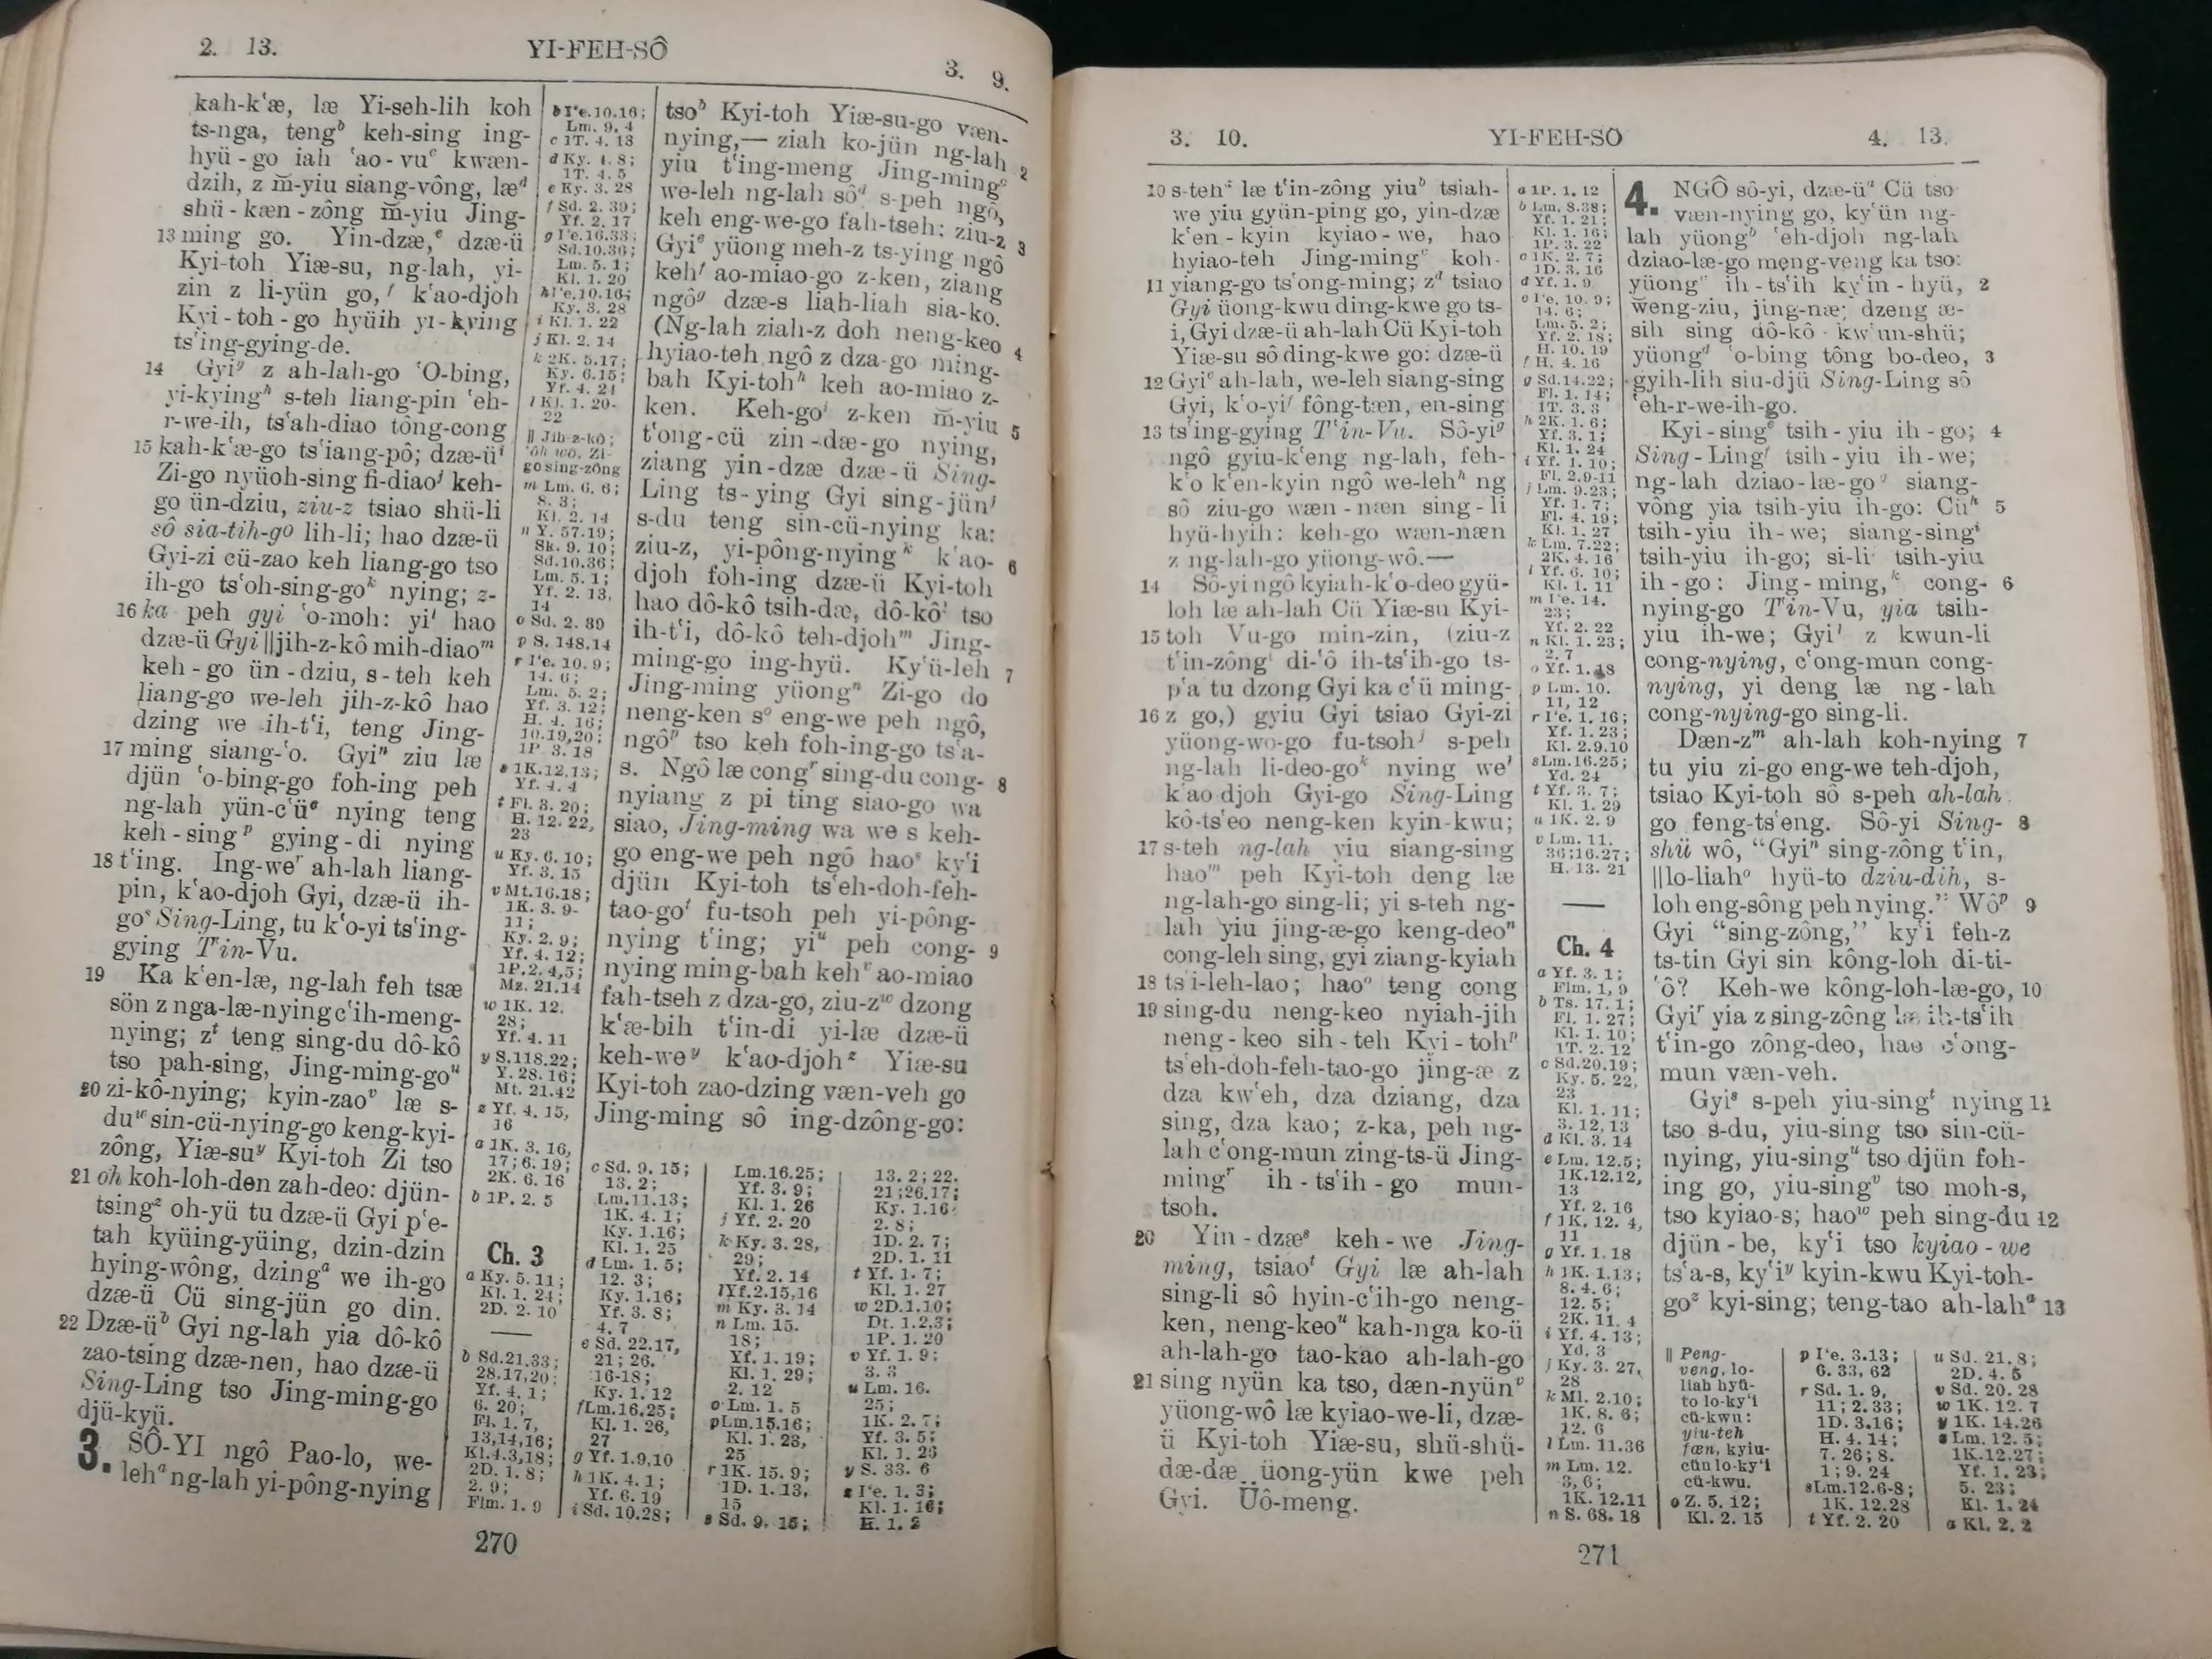 2. 13. YI-FEH-SÔ 3. 9.
kah-kʻæ, læ Yi-seh-lih koh
ts-nga, tengᵇ keh-sing ing-
hyü-go iah ʻao-vuᶜ kwæn-
dzih, z m̄-yiu siang-vông, læᵈ
shü-kæn-zông m̄-yiu Jing-
13 ming go. Yin-dzæ,ᵉ dzæ-ü
Kyi-toh Yiæ-su, ng-lah, yi-
zin z li-yün go,ᶠ kʻao-djoh
Kyi-toh-go hyüih yi-kying
tsʻing-gying-de.
14 Gyiᵍ z ah-lah-go ʻO-bing,
yi-kyingʰ s-teh liang-pin ʻeh-
r-we-ih, tsʻah-diao tông-cong
15 kah-kʻæ-go tsʻiang-pô; dzæ-üⁱ
Zi-go nyüoh-sing fi-diaoʲ keh-
go ün-dziu, ziu-z tsiao shü-li
sô sia-tih-go lih-li; hao dzæ-ü
Gyi-zi cü-zao keh liang-go tso
ih-go tsʻoh-sing-goᵏ nying; z-
16 ka peh gyi ʻo-moh: yiˡ hao
dzæ-ü Gyi ‖jih-z-kô mih-diaoᵐ
keh-go ün-dziu, s-teh keh
liang-go we-leh jih-z-kô hao
dzing we ih-tʻi, teng Jing-
17 ming siang-ʻo. Gyiⁿ ziu læ
djün ʻo-bing-go foh-ing peh
ng-lah yün-cʻüᵒ nying teng
keh-singᵖ gying-di nying
18 tʻing. Ing-weʳ ah-lah liang-
pin, kʻao-djoh Gyi, dzæ-ü ih-
goˢ Sing-Ling, tu kʻo-yi tsʻing-
gying Tʻin-Vu.
19 Ka kʻen-læ, ng-lah feh tsæ
sön z nga-læ-nying cʻih-meng-
nying; zᵗ teng sing-du dô-kô
tso pah-sing, Jing-ming-goᵘ
20 zi-kô-nying; kyin-zaoᵛ læ s-
duʷ sin-cü-nying-go keng-kyi-
zông, Yiæ-suʸ Kyi-toh Zi tso
21 oh koh-loh-den zah-deo: djün-
tsingᶻ oh-yü tu dzæ-ü Gyi pʻe-
tah kyüing-yüing, dzin-dzin
hying-wông, dzingᵃ we ih-go
dzæ-ü Cü sing-jün go din.
22 Dzæ-üᵇ Gyi ng-lah yia dô-kô
zao-tsing dzæ-nen, hao dzæ-ü
Sing-Ling tso Jing-ming-go
djü-kyü.
3. SÔ-YI ngô Pao-lo, we-
lehᵃ ng-lah yi-pông-nying
b Iʻe.10.16;
Lm. 9. 4
c 1T. 4. 13
d Ky. 4. 8;
1T. 4. 5
e Ky. 3. 28
f Sd. 2. 39;
Yf. 2. 17
g Iʻe.16.33;
Sd.10.36;
Lm. 5. 1;
Kl. 1. 20
h Iʻe.10.16;
Ky. 3. 28
i Kl. 1. 22
j Kl. 2. 14
k 2K. 5.17;
Ky. 6.15;
Yf. 4. 24
l Kl. 1. 20-
22
‖ Jih-z-kô;
ʻôh wô, Zi-
go sing-zông
m Lm. 6. 6;
8. 3;
Kl. 2. 14
n Y. 57.19;
Sk. 9. 10;
Sd.10.36;
Lm. 5. 1;
Yf. 2. 13,
14
o Sd. 2. 39
p S. 148.14
r Iʻe. 10. 9;
14. 6;
Lm. 5. 2;
Yf. 3. 12;
H. 4. 16;
10.19,20;
1P. 3. 18
s 1K.12.13;
Yf. 4. 4
t Fl. 3. 20;
H. 12. 22,
23
u Ky. 6. 10;
Yf. 3. 15
v Mt.16.18;
1K. 3. 9-
11;
Ky. 2. 9;
Yf. 4. 12;
1P.2. 4,5;
Mz. 21.14
w 1K. 12.
28;
Yf. 4. 11
y S.118.22;
Y. 28. 16;
Mt. 21.42
z Yf. 4. 15,
16
a 1K. 3. 16,
17; 6. 19;
2K. 6. 16
b 1P. 2. 5
Ch. 3
a Ky. 5. 11;
Kl. 1. 24;
2D. 2. 10
b Sd.21.33;
28.17,20;
Yf. 4. 1;
6. 20;
Fl. 1. 7,
13,14,16;
Kl.4.3,18;
2D. 1. 8;
2. 9;
Flm. 1. 9
tsoᵇ Kyi-toh Yiæ-su-go væn-
nying,— ziah ko-jün ng-lah 2
yiu tʻing-meng Jing-mingᶜ
we-leh ng-lah sôᵈ s-peh ngô,
keh eng-we-go fah-tseh: ziu-z 3
Gyiᵉ yüong meh-z ts-ying ngô
kehᶠ ao-miao-go z-ken, ziang
ngôᵍ dzæ-s liah-liah sia-ko.
(Ng-lah ziah-z doh neng-keo 4
hyiao-teh ngô z dza-go ming-
bah Kyi-tohʰ keh ao-miao z-
ken. Keh-goⁱ z-ken m̄-yiu 5
tʻong-cü zin-dæ-go nying,
ziang yin-dzæ dzæ-ü Sing-
Ling ts-ying Gyi sing-jünʲ
s-du teng sin-cü-nying ka:
ziu-z, yi-pông-nyingᵏ kʻao- 6
djoh foh-ing dzæ-ü Kyi-toh
hao dô-kô tsih-dæ, dô-kôˡ tso
ih-tʻi, dô-kô teh-djohᵐ Jing-
ming-go ing-hyü. Kyʻü-leh 7
Jing-ming yüongⁿ Zi-go do
neng-ken sᵒ eng-we peh ngô,
ngôᵖ tso keh foh-ing-go tsʻa-
s. Ngô læ congʳ sing-du cong- 8
nyiang z pi ting siao-go wa
siao, Jing-ming wa we s keh-
go eng-we peh ngô haoˢ kyʻi
djün Kyi-toh tsʻeh-doh-feh-
tao-goᵗ fu-tsoh peh yi-pông-
nying tʻing; yiᵘ peh cong- 9
nying ming-bah kehᵛ ao-miao
fah-tseh z dza-go, ziu-zʷ dzong
kʻæ-bih tʻin-di yi-læ dzæ-ü
keh-weʸ kʻao-djohᶻ Yiæ-su
Kyi-toh zao-dzing væn-veh go
Jing-ming sô ing-dzông-go:
c Sd. 9. 15;
13. 2;
Lm.11.13;
1K. 4. 1;
Ky. 1.16;
Kl. 1. 25
d Lm. 1. 5;
12. 3;
Ky. 1.16;
Yf. 3. 8;
4. 7
e Sd. 22.17,
21; 26.
16-18;
Ky. 1. 12
f Lm.16.25;
Kl. 1. 26,
27
g Yf. 1.9,10
h 1K. 4. 1;
Yf. 6. 19
i Sd. 10.28;
Lm.16.25;
Yf. 3. 9;
Kl. 1. 26
j Yf. 2. 20
k Ky. 3. 28,
29;
Yf. 2. 14
l Yf.2.15,16
m Ky. 3. 14
n Lm. 15.
18;
Yf. 1. 19;
Kl. 1. 29;
2. 12
o Lm. 1. 5
p Lm.15.16;
Kl. 1. 23,
25
r 1K. 15. 9;
1D. 1. 13,
15
s Sd. 9. 15;
13. 2; 22.
21; 26.17;
Ky. 1.16;
2. 8;
1D. 2. 7;
2D. 1. 11
t Yf. 1. 7;
Kl. 1. 27
w 2D.1.10;
Dt. 1.2,3;
1P. 1. 20
v Yf. 1. 9;
3. 3
u Lm. 16.
25;
1K. 2. 7;
Yf. 3. 5;
Kl. 1. 26
y S. 33. 6
z Iʻe. 1. 3;
Kl. 1. 16;
H. 1. 2
270
3. 10. YI-FEH-SÔ 4. 13.
10 s-tehᵃ læ tʻin-zông yiuᵇ tsiah-
we yiu gyün-ping go, yin-dzæ
kʻen-kyin kyiao-we, hao
hyiao-teh Jing-mingᶜ koh-
11 yiang-go tsʻong-ming; zᵈ tsiao
Gyi üong-kwu ding-kwe go ts-
i, Gyi dzæ-ü ah-lah Cü Kyi-toh
Yiæ-su sô ding-kwe go: dzæ-ü
12 Gyiᵉ ah-lah, we-leh siang-sing
Gyi, kʻo-yiᶠ fông-tæn, en-sing
13 tsʻing-gying Tʻin-Vu. Sô-yiᵍ
ngô gyiu-kʻeng ng-lah, feh-
kʻo kʻen-kyin ngô we-lehʰ ng
sô ziu-go wæn-næn sing-li
hyü-hyih: keh-go wæn-næn
z ng-lah-go yüong-wô.—
14 Sô-yi ngô kyiah-kʻo-deo gyü-
loh læ ah-lah Cü Yiæ-su Kyi-
15 toh Vu-go min-zin, (ziu-z
tʻin-zôngⁱ di-ʻô ih-tsʻih-go ts-
pʻa tu dzong Gyi ka cʻü ming-
16 z go,) gyiu Gyi tsiao Gyi-zi
yüong-wo-go fu-tsohʲ s-peh
ng-lah li-deo-goᵏ nying weˡ
kʻao djoh Gyi-go Sing-Ling
kô-tsʻeo neng-ken kyin-kwu;
17 s-teh ng-lah yiu siang-sing
haoᵐ peh Kyi-toh deng læ
ng-lah-go sing-li; yi s-teh ng-
lah yiu jing-æ-go keng-deoⁿ
cong-leh sing, gyi ziang-kyiah
18 tsʻi-leh-lao; haoᵒ teng cong
19 sing-du neng-keo nyiah-jih
neng-keo sih-teh Kyi-tohᵖ
tsʻeh-doh-feh-tao-go jing-æ z
dza kwʻeh, dza dziang, dza
sing, dza kao; z-ka, peh ng-
lah cʻong-mun zing-ts-ü Jing-
mingʳ ih-tsʻih-go mun-
tsoh.
20 Yin-dzæˢ keh-we Jing-
ming, tsiaoᵗ Gyi læ ah-lah
sing-li sô hyin-cʻih-go neng-
ken, neng-keoᵘ kah-nga ko-ü
ah-lah-go tao-kao ah-lah-go
21 sing nyün ka tso, dæn-nyünᵛ
yüong-wô læ kyiao-we-li, dzæ-
ü Kyi-toh Yiæ-su, shü-shü-
dæ-dæ üong-yün kwe peh
Gyi. Üô-meng.
a 1P. 1. 12
b Lm. 8.38;
Yf. 1. 21;
Kl. 1. 16;
1P. 3. 22
c 1K. 2. 7;
1D. 3. 16
d Yf. 1. 9
e Iʻe. 10. 9;
14. 6;
Lm. 5. 2;
Yf. 2. 18;
H. 10. 19
f H. 4. 16
g Sd.14.22;
Fl. 1. 14;
1T. 3. 3
h 2K. 1. 6;
Yf. 3. 1;
Kl. 1. 24
i Yf. 1. 10;
Fl. 2.9-11
j Lm. 9.23;
Yf. 1. 7;
Fl. 4. 19;
Kl. 1. 27
k Lm. 7.22;
2K. 4. 16
l Yf. 6. 10;
Kl. 1. 11
m Iʻe. 14.
23;
Yf. 2. 22
n Kl. 1. 23;
2. 7
o Yf. 1. 18
p Lm. 10.
11, 12
r Iʻe. 1. 16;
Yf. 1. 23;
Kl. 2.9.10
s Lm.16.25;
Yd. 24
t Yf. 3. 7;
Kl. 1. 29
u 1K. 2. 9
v Lm. 11.
36;16.27;
H. 13. 21
Ch. 4
a Yf. 3. 1;
Flm. 1, 9
b Ts. 17. 1;
Fl. 1. 27;
Kl. 1. 10;
1T. 2. 12
c Sd.20.19;
Ky. 5. 22,
23
Kl. 1. 11;
3. 12, 13
d Kl. 3. 14
e Lm. 12.5;
1K.12.12,
13
Yf. 2. 16
f 1K. 12. 4,
11
g Yf. 1. 18
h 1K. 1.13;
8. 4. 6;
12. 5;
2K. 11. 4
i Yf. 4. 13;
Yd. 3
j Ky. 3. 27,
28
k Ml. 2.10;
1K. 8. 6;
12. 6
l Lm. 11.36
m Lm. 12.
3, 6;
1K. 12.11
n S. 68. 18
4. NGÔ sô-yi, dzæ-üᵃ Cü tso
væn-nying go, kyʻün ng-
lah yüongᵇ ʻeh-djoh ng-lah
dziao-læ-go meng-veng ka tso:
yüongᶜ ih-tsʻih kyʻin-hyü, 2
weng-ziu, jing-næ; dzeng æ-
sih sing dô-kô kwʻun-shü;
yüongᵈ ʻo-bing tông bo-deo, 3
gyih-lih siu-djü Sing-Ling sô
ʻeh-r-we-ih-go.
Kyi-singᵉ tsih-yiu ih-go; 4
Sing-Lingᶠ tsih-yiu ih-we;
ng-lah dziao-læ-goᵍ siang-
vông yia tsih-yiu ih-go: Cüʰ 5
tsih-yiu ih-we; siang-singⁱ
tsih-yiu ih-go; si-liʲ tsih-yiu
ih-go: Jing-ming,ᵏ cong- 6
nying-go Tʻin-Vu, yia tsih-
yiu ih-we; Gyiˡ z kwun-li
cong-nying, cʻong-mun cong-
nying, yi deng læ ng-lah
cong-nying-go sing-li.
Dæn-zᵐ ah-lah koh-nying 7
tu yiu zi-go eng-we teh-djoh,
tsiao Kyi-toh sô s-peh ah-lah
go feng-tsʻeng. Sô-yi Sing- 8
shü wô, “Gyiⁿ sing-zông tʻin,
‖lo-liahᵒ hyü-to dziu-dih, s-
loh eng-sông peh nying.” Wôᵖ 9
Gyi “sing-zông,” kyʻi feh-z
ts-tin Gyi sin kông-loh di-ti-
ʻô? Keh-we kông-loh-læ-go, 10
Gyiʳ yia z sing-zông læ ih-tsʻih
tʻin-go zông-deo, hao cʻong-
mun væn-veh.
Gyiˢ s-peh yiu-singᵗ nying 11
tso s-du, yiu-sing tso sin-cü-
nying, yiu-singᵘ tso djün foh-
ing go, yiu-singᵛ tso moh-s,
tso kyiao-s; haoʷ peh sing-du 12
djün-be, kyʻi tso kyiao-we
tsʻa-s, kyʻiʸ kyin-kwu Kyi-toh-
goᶻ kyi-sing; teng-tao ah-lahᵃ 13
‖ Peng-
veng, lo-
liah hyü-
to lo-kyʻi
cü-kwu:
yiu-teh
fæn, kyiu-
cün lo-kyʻi
cü-kwu.
o Z. 5. 12;
Kl. 2. 15
p Iʻe. 3.13;
6. 33, 62
r Sd. 1. 9,
11; 2.33;
1D. 3.16;
H. 4. 14;
7. 26; 8.
1; 9. 24
s Lm.12.6-8;
1K. 12.28
t Yf. 2. 20
u Sd. 21. 8;
2D. 4. 5
v Sd. 20. 28
w 1K. 12. 7
y 1K. 14.26
z Lm. 12. 5;
1K.12.27;
Yf. 1. 23;
5. 23;
Kl. 1. 24
a Kl. 2. 2
271